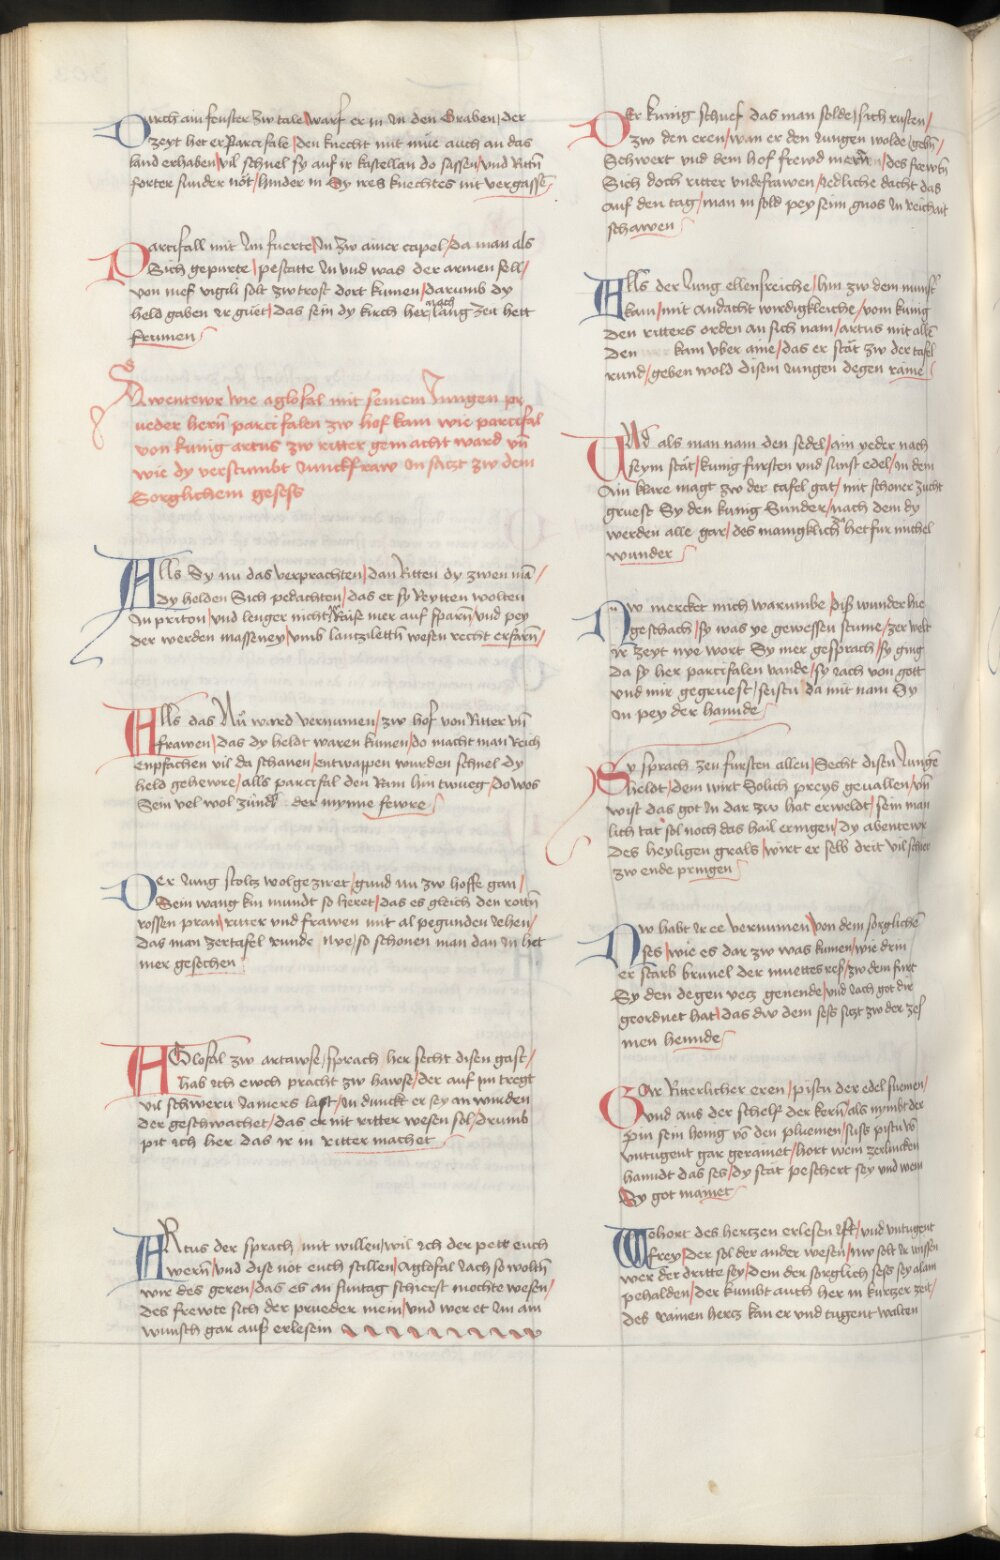 Durch ain fenster zw tale / warf er in in den Graben / der
zeyt het er Parcifale / den knecht mit müe auch an das
land erhaben / vil schnel sy auf ir kastellan do sassen / vnd Rittn
forter sunder not / hinder in Sy ires knechtes nit vergassen
Partifall mit im fuerte / in zw ainer capel / da man als
Sich gepurte / pestatte in vnd was der armen sell /
von mes vigili solt zw trost dort kumen / darumb dy
held gaben ir guet / das sein dy kirch her nach lang zeit hett
frumen
Abentewr wie aglofal mit seinem Jungen pr
ueder hern parcifalen zw hof kam wie parcifal
von kunig artus zw ritter gemacht ward vn
wie dy verstumbt Junckfraw in satzt zw dem
Sorglichem gesess
Alls Sy nu das verprachten / dan Ritten dy zwen man /
dy helden Sich pedachten / das et sy Reytten wolten
in priton / vnd lenger nicht Ruse mer auf sparn / vnd pey
der werden masseney / vmb lantzilettn wesen recht erfarn /
Alls das Nu ward vernumen / zw hof von Ritter vn
frawen / das dy heldt waren kumen / do macht man Reich
enpfachen vil da schauen / entwappen wurden schnel dy
held gehewre / alls parcifal den Ram hin twueg / do wos
Sein vel wol zundt der mynne fewre
Der Jung stoltz wolgeziret / gund nu zw hoffe gan /
Sein wang kin mundt so heret / das es gleich den rottn
rossen pran / ritter vnd frawen mit al pegunden iehen /
das man zertafel runde / nye / so schonen man dan in het
mer gesechen
AGlofal zw artawse / sprach her secht disen gast /
hab ich ewch pracht zw hawse / der auf im tregt
vil schwern Jamers last / in dunckt er sey an wirden
der geschwachet / das er nit ritter wesen sol / drumb
pit ich her das ir in ritter machet
ARtus der sprach mit willen / wil ich der pett euch
wern / vnd dise not euch stillen / Aglofal iach so wolltn
wir des geren / das es an suntag schierst mochte wesen /
des frewte sich der prueder mein / vnd wer et im am
wunsch gar ausz erlesem
Der kunig schuef das man solde / sich rusten /
zw den eren / wan er den Jungen wolde / gebn /
Schwert vnd dem hof frewd meren / des frewtn
Sich doch ritter vnd frawen / iedliche dacht das
auf den tag / man in sold pey seim gnos in reichait
schawen
Alls der Jung ellensreiche / hin zw dem munst
kam / mit andacht wirdigkleiche / vom kunig
den ritters orden an sich nam / artus mit allen
den kam vber aine / das er stat zw der tafel
rund / geben wold disem Jungen degen raine
Und als man nam den sedel / ain yeder nach
seym stat / kunig fursten vnd sunst edel / in dem
Ain klare magt zw der tafel gat / mit schoner zucht
gruest Sy den kunig Sunder / nach dem dy
werden alle gar / des manigklich het fur michel
wunder
Nw mercket mich warumbe / disz wunder hie
geschach / sy was ye gewessen stume / zer welt
ir zeyt nye wort Sy mer gesprach / sy ging
da sy her parcifalen vande / sy iach von gott
vnd mir gegruest / seistu da mit nam Sy
in pey der hannde
Sy sprach zen fursten allen / Secht disen Jungen
heldt / dem wirt Solich preys geuallen / vn
wist das got in dar zw hat erweldt / sein man
lich tat sol noch das hail eringen / dy abentewr
des heyligen grals / wirt er selb drit vil schier
zw ende pringen
Nw habt ir ee vernumen / von dem sorglichen
ses / wie es dar zw was kumen / wie drin
er starb brunel der muettes res / zw dem furt
Sy den degen vecz genende / vnd iach got dir
geordnet hat / das dw dem sess sizt zw der zes
men hennde
Gar Ritterlicher eren / pistu der edel stamen /
vnd aus der schelf der kern / als nymbt der
pin sein honig von den pluemen / suss pistu von
vntugent gar gerainet / hort wem zerlincken
hanndt das ses / dy stat peschert sey vnd wem
Sy got mainet
Wohort des hertzen erlesen ist / vnd vntugent
frey / der sol der ander wesen / nw solt ir wissen
wer der dritte sey / dem der sorglich sess sey alain
pehalden / der kumbt auch her in kurtzer zeit /
des rainen hertz kan er vnd tugent walten